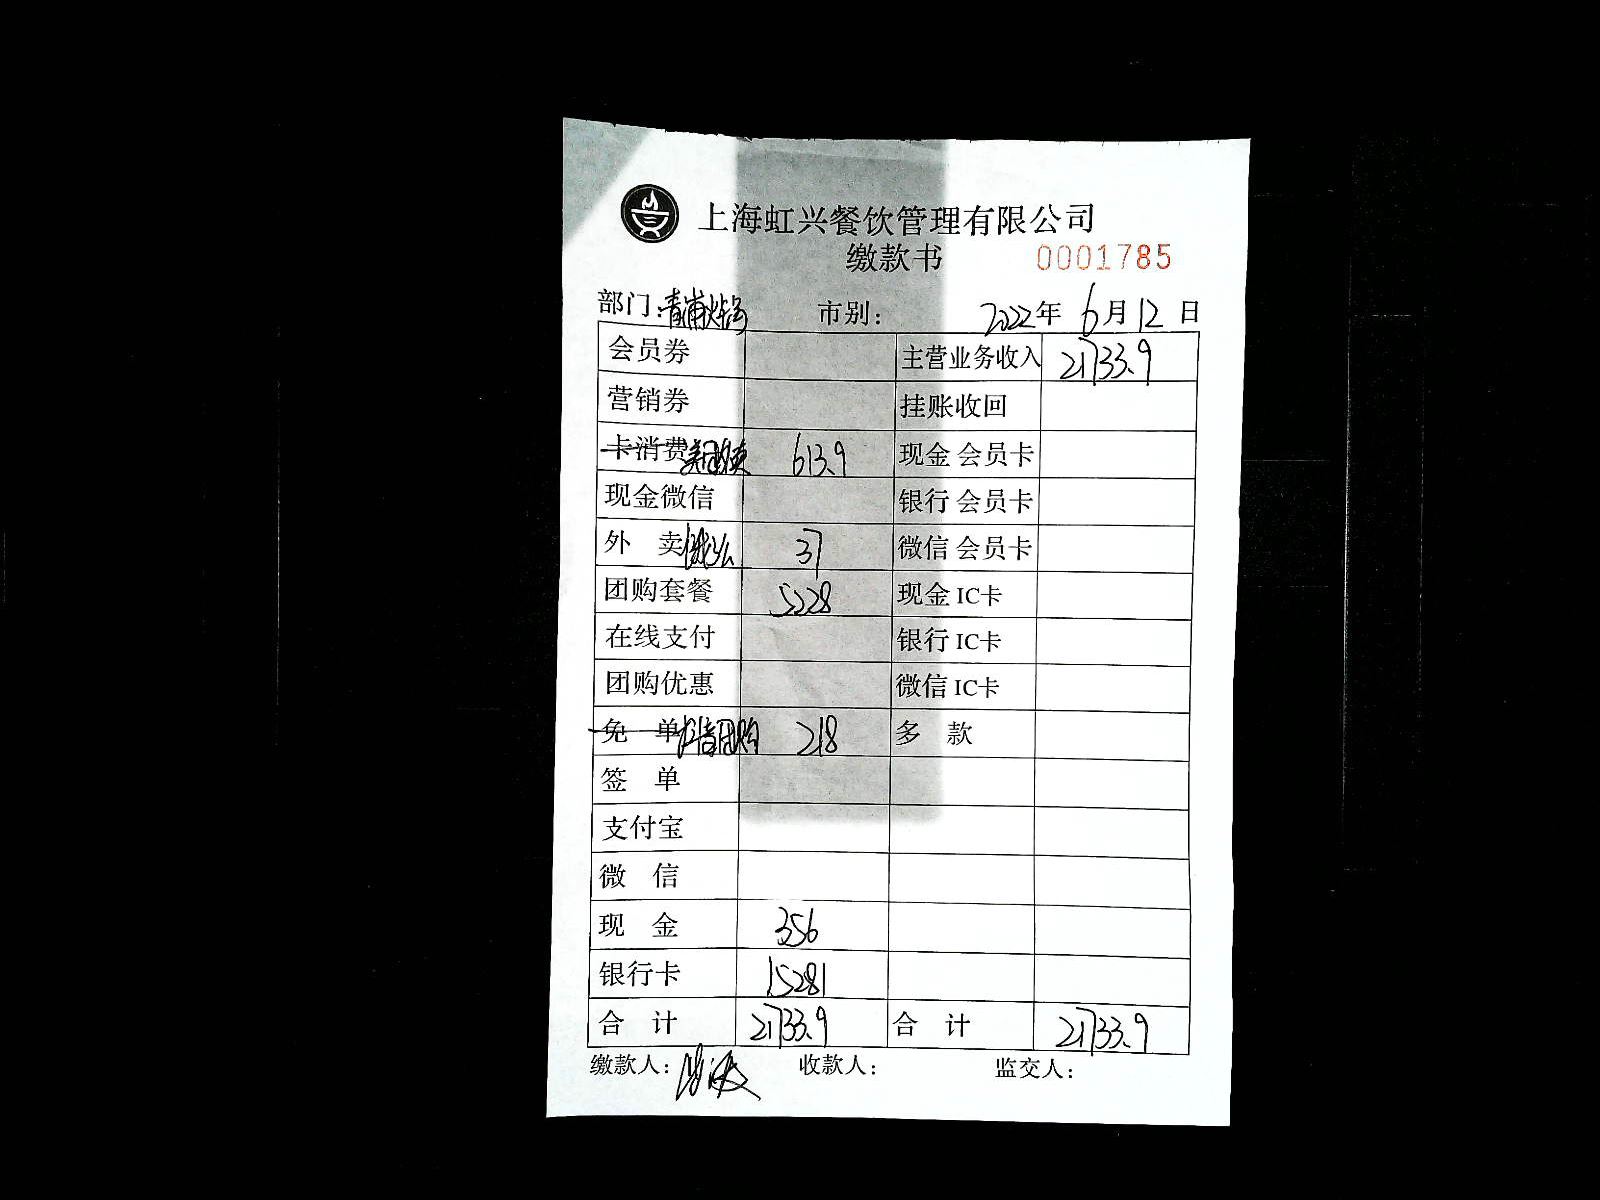 上海虹兴餐饮管理有限公司
缴款书 0001785
部门:青浦火锅 市别: 2022年 6月12日
会员券 主营业务收入 21733.9
营销券 挂账收回
卡消费 美团外卖 613.9 现金 会员卡
现金微信 银行 会员卡
外 卖 饿了么 37 微信 会员卡
团购套餐 5228 现金 IC卡
在线支付 银行 IC卡
团购优惠 微信 IC卡
免 单 抖音团购 218 多 款
签 单
支付宝
微 信
现 金 356
银行卡 15281
合 计 21733.9 合 计 21733.9
缴款人: 收款人: 监交人: